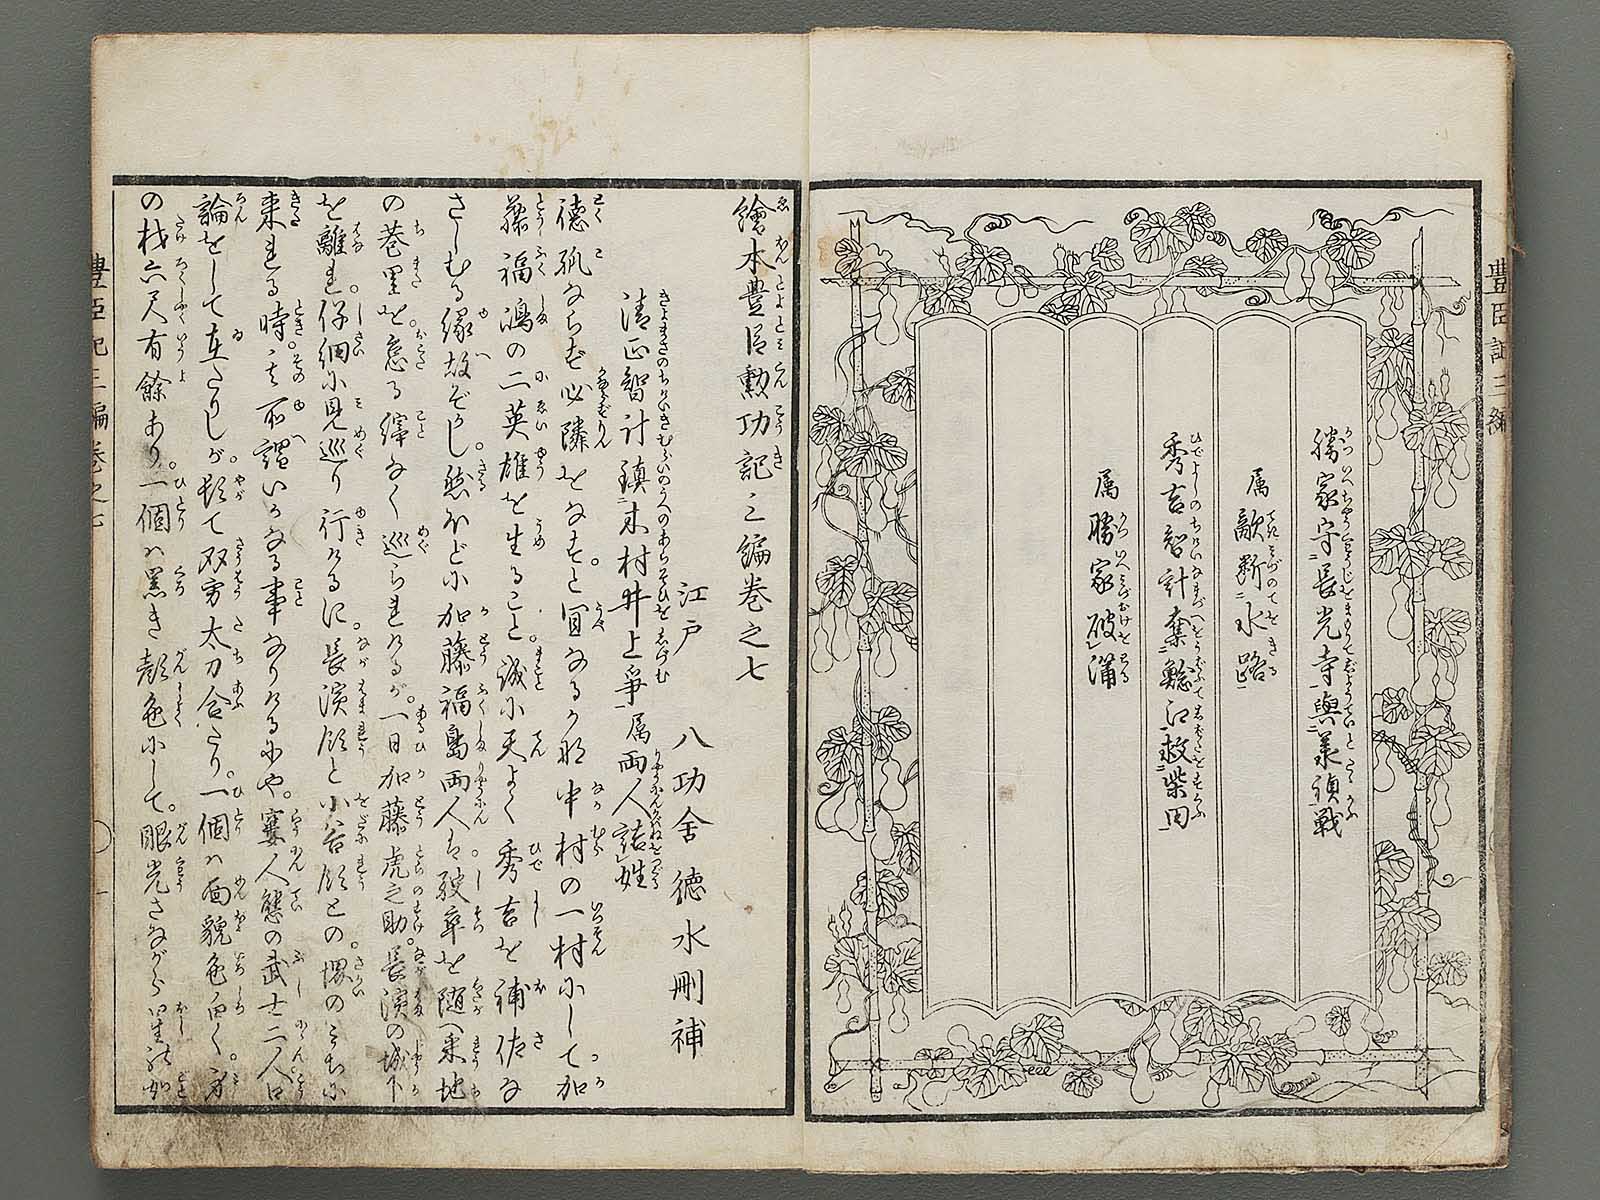 豊臣記三編
勝家守長光寺與義禎戦
属敵断水路
秀吉智計棄鯰江救柴田
属勝家破瓶
繪本豊臣勲功記三編巻之七
江戸 八功舍徳水刪補
清正智計鎮木村井上爭 属両人詰姓
徳孤ならず必隣をなすと宜なるかな中村の一村にして加
藤福嶋の二英雄を生ること誠に天よく秀吉を補佐な
さしむる縁故ぞかし然ほどに加藤福島両人は破卒を随へ来地
の巷里を怠る縡なく巡られけるが一日加藤虎之助長濱の城下
を離れ仔細に見巡り行けるに長濱領と小谷領との堺のこちに
来れる時其所謂いかなる事なりけるにや窶人態の武士二人口
論をして在たりしが軈て双方太刀合たり一個は面貌色白く身
の材六尺有餘あり一個は黒き顔色にして眼光さながら星の如
豊臣記三編巻之七 一